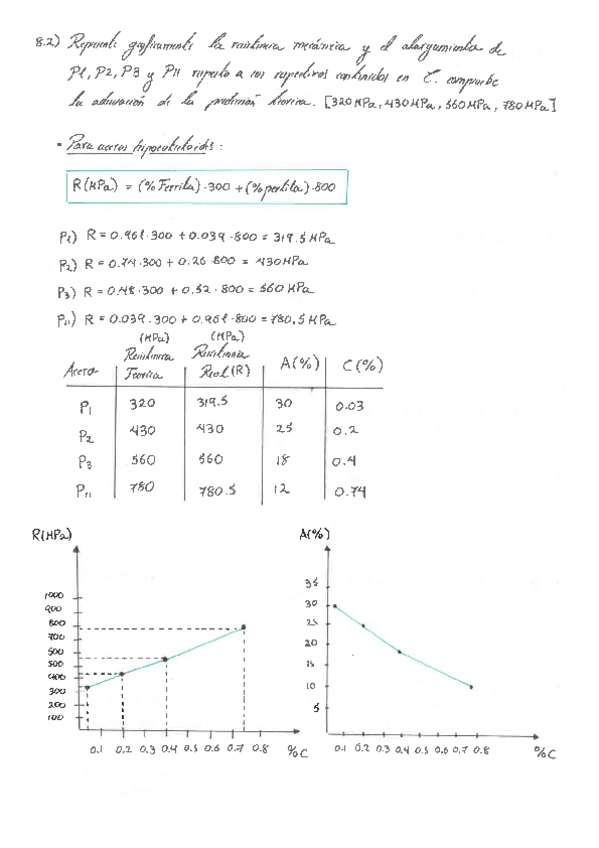 8.2) Represente graficamente la resistencia mecánica y el alargamiento de
P1, P2, P3 y P11 respecto a sus respectivos contenidos en C. compruebe
la adecuación de la predicción teorica. [320 MPa, 430 MPa, 560 MPa, 780 MPa]
- Para aceros hipoeutectoides :
R (MPa) = (% Ferrita) · 300 + (% perlita) · 800
P1) R = 0.961 · 300 + 0.039 · 800 = 319.5 MPa
P2) R = 0.74 · 300 + 0.26 · 800 = 430 MPa
P3) R = 0.48 · 300 + 0.52 · 800 = 560 MPa
P11) R = 0.039 · 300 + 0.961 · 800 = 780,5 MPa
(MPa) (MPa)
Acero Resistencia Teorica Resistencia Real (R) A (%) C (%)
P1 320 319.5 30 0.03
P2 430 430 25 0.2
P3 560 560 18 0.4
P11 780 780.5 12 0.74
R (MPa)
1000
900
800
700
500
500
400
300
200
100
0.1 0.2 0.3 0.4 0.5 0.6 0.7 0.8 % C
A (%)
35
30
25
20
15
10
5
0.1 0.2 0.3 0.4 0.5 0.6 0.7 0.8 % C